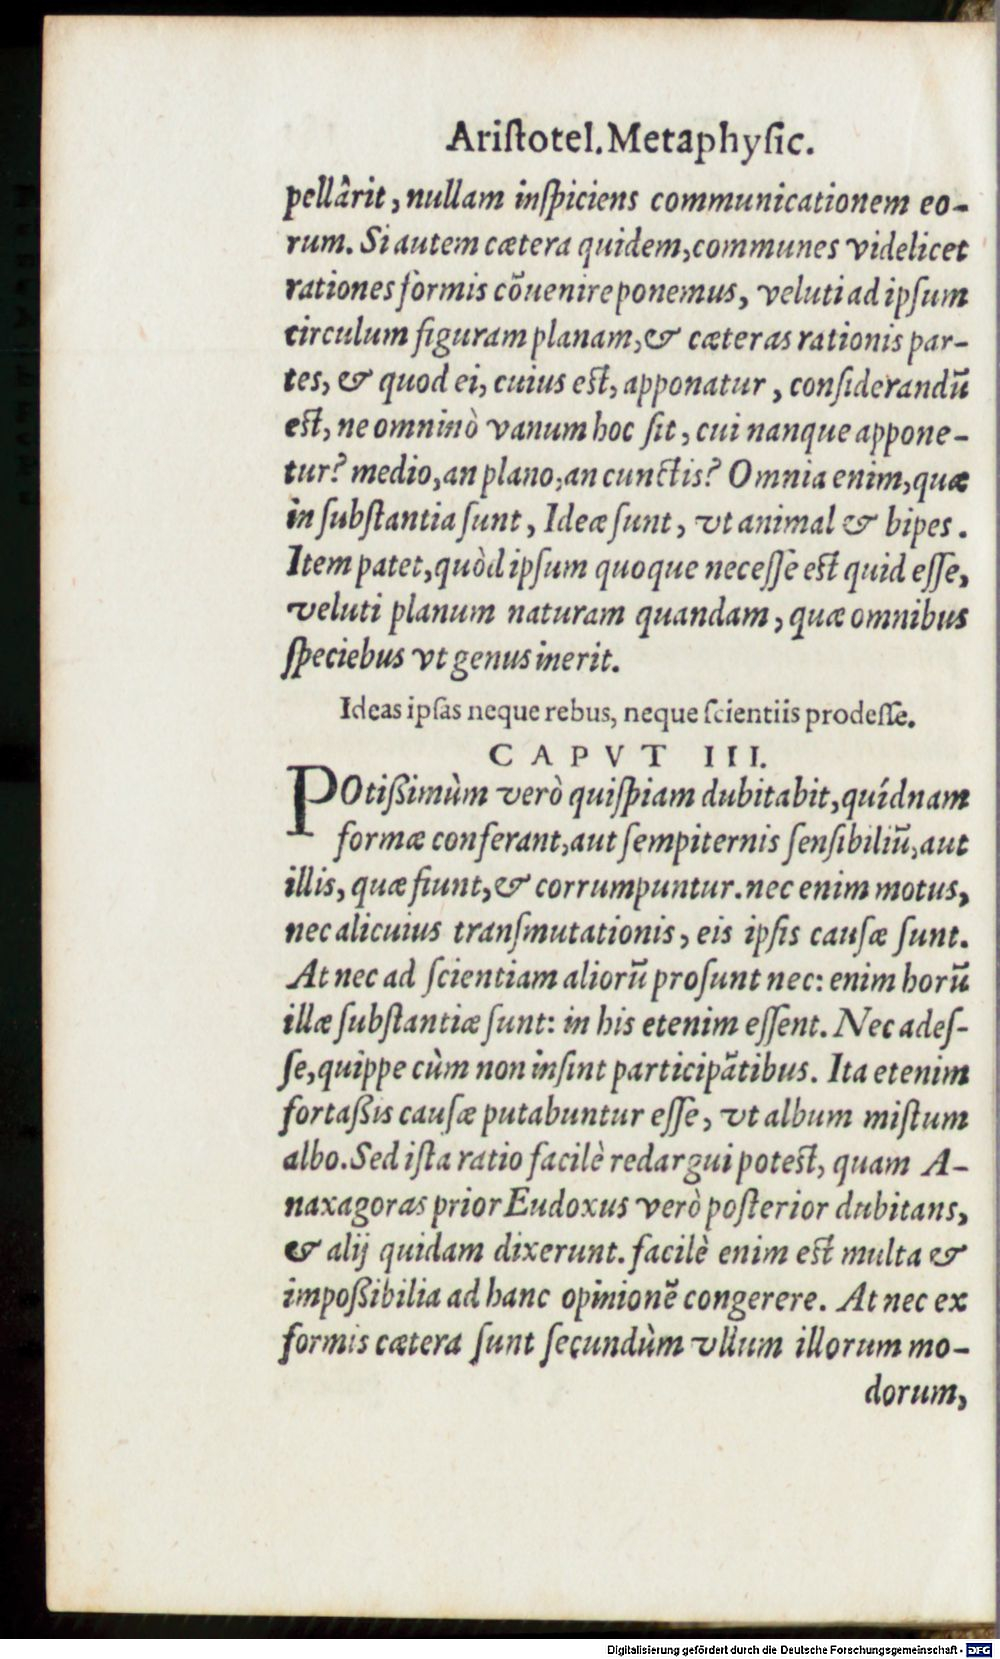 Ariſtotel. Metaphyſic.
pellârit, nullam inſpiciens communicationem eo-
rum. Si autem cætera quidem, communes videlicet
rationes formis cõuenire ponemus, veluti ad ipſum
circulum figuram planam, & cæteras rationis par-
tes, & quod ei, cuius eſt, apponatur, conſiderandũ
eſt, ne omninò vanum hoc ſit, cui nanque appone-
tur? medio, an plano, an cunctis? Omnia enim, quæ
in ſubſtantia ſunt, Ideæ ſunt, vt animal & bipes.
Item patet, quòd ipſum quoque neceſſe eſt quid eſſe,
veluti planum naturam quandam, quæ omnibus
ſpeciebus vt genus inerit.
Ideas ipſas neque rebus, neque ſcientiis prodeſſe.
CAPVT III.
POtißimùm verò quiſpiam dubitabit, quídnam
formæ conferant, aut ſempiternis ſenſibiliũ, aut
illis, quæ fiunt, & corrumpuntur. nec enim motus,
nec alicuius tranſmutationis, eis ipſis cauſæ ſunt.
At nec ad ſcientiam aliorũ proſunt nec: enim horũ
illæ ſubſtantiæ ſunt: in his etenim eſſent. Nec adeſ-
ſe, quippe cùm non inſint participãtibus. Ita etenim
fortaßis cauſæ putabuntur eſſe, vt album miſtum
albo. Sed iſta ratio facilè redargui poteſt, quam A-
naxagoras prior Eudoxus verò poſterior dubitans,
& alij quidam dixerunt. facilè enim eſt multa &
impoßibilia ad hanc opinionẽ congerere. At nec ex
formis cætera ſunt ſecundùm vllum illorum mo-
dorum,
Digitalisierung gefördert durch die Deutsche Forschungsgemeinschaft - DFG